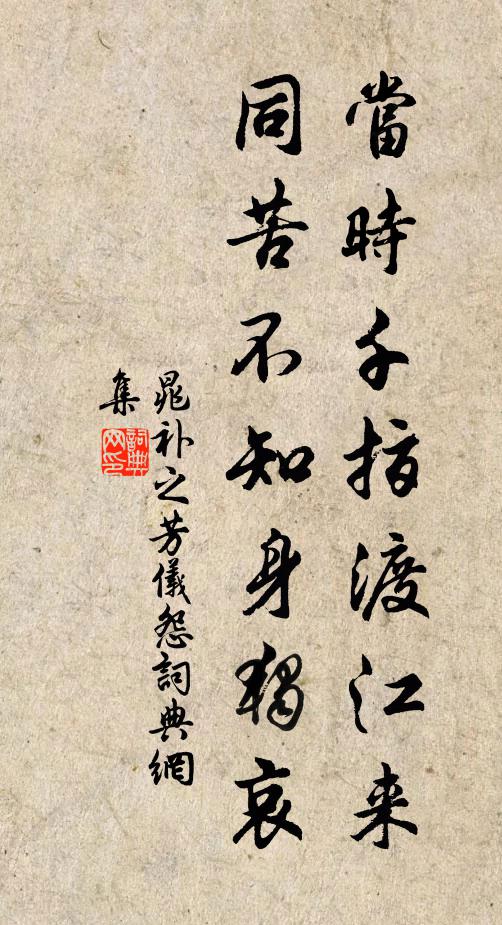 當時千指渡江来
同苦不知身獨哀
晁补之芳儀怨詞典網
集
詞典
网印